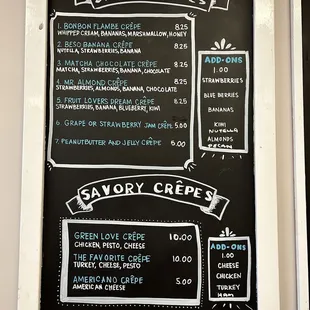 1. BONBON FLAMBE CRÊPE 8.25
WHIPPED CREAM, BANANAS, MARSHMALLOW, HONEY
2. BESO BANANA CRÊPE 8.25
NUTELLA, STRAWBERRIES, BANANA
3. MATCHA CHOCOLATE CRÊPE 8.25
MATCHA, STRAWBERRIES, BANANA, CHOCOLATE
4. MR. ALMOND CRÊPE 8.25
STRAWBERRIES, ALMONDS, BANANA, CHOCOLATE
5. FRUIT LOVERS DREAM CRÊPE 8.25
STRAWBERRIES, BANANA, BLUEBERRY, KIWI
6. GRAPE OR STRAWBERRY JAM CRÊPE 5.00
7. PEANUTBUTTER AND JELLY CRÊPE 6.00
ADD-ONS
1.00
STRAWBERRIES
BLUE BERRIES
BANANAS
KIWI
NUTELLA
ALMONDS
PECAN
SAVORY CRÊPES
GREEN LOVE CRÊPE 10.00
CHICKEN, PESTO, CHEESE
THE FAVORITE CRÊPE 10.00
TURKEY, CHEESE, PESTO
AMERICANO CRÊPE 5.00
AMERICAN CHEESE
ADD-ONS
1.00
CHEESE
CHICKEN
TURKEY
HAM